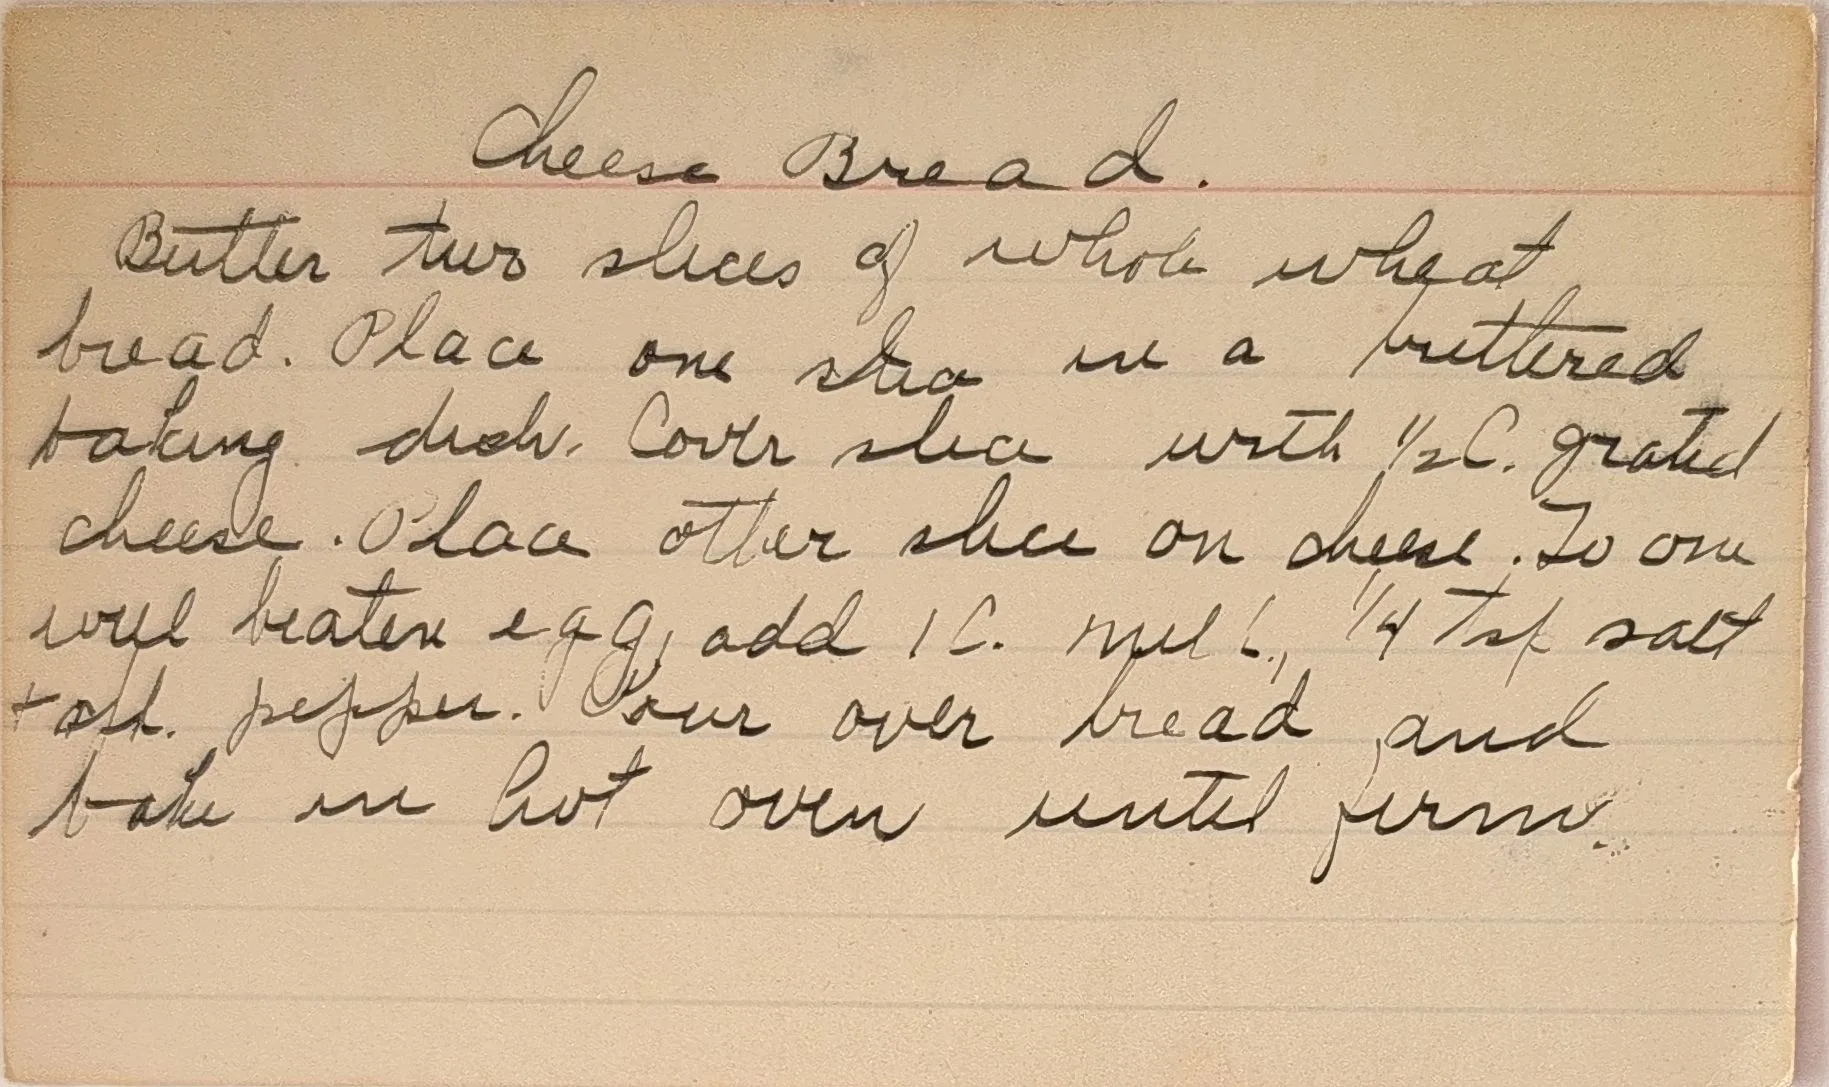 Cheese Bread.
Butter two slices of whole wheat
bread. Place one slice in a buttered
baking dish. Cover slice with 1/2 C. grated
cheese. Place other slice on cheese. To one
well beaten egg, add 1 C. milk, 1/4 Tsp salt
+ pepper. Pour over bread and
bake in hot oven until firm.